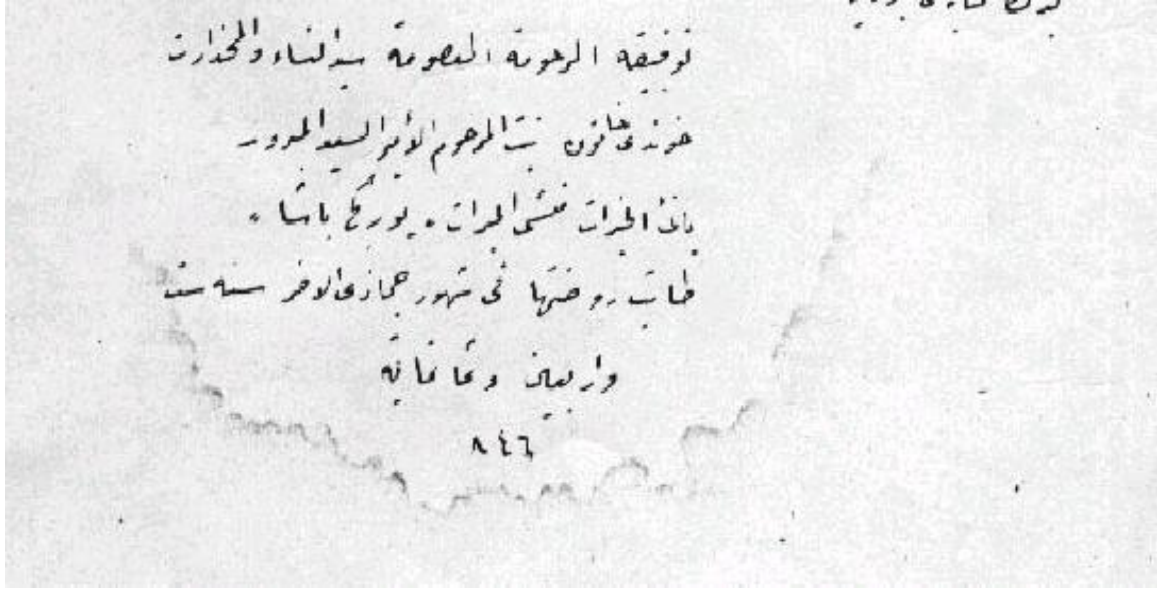 توفيقه المرحومة المعصومة سيد النساء والمخدرات
خوندى خاتون بنت المرحوم الأمير السعيد المبرور
بانى الخيرات منشى المبرات، يوركج باشا،
طابت روضتها فى شهور جمادى الاخر سنه ست
واربعين وثمانمايه
٨٤٦